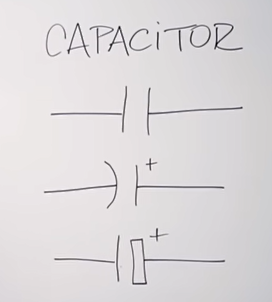 CAPACiTOR
+
+